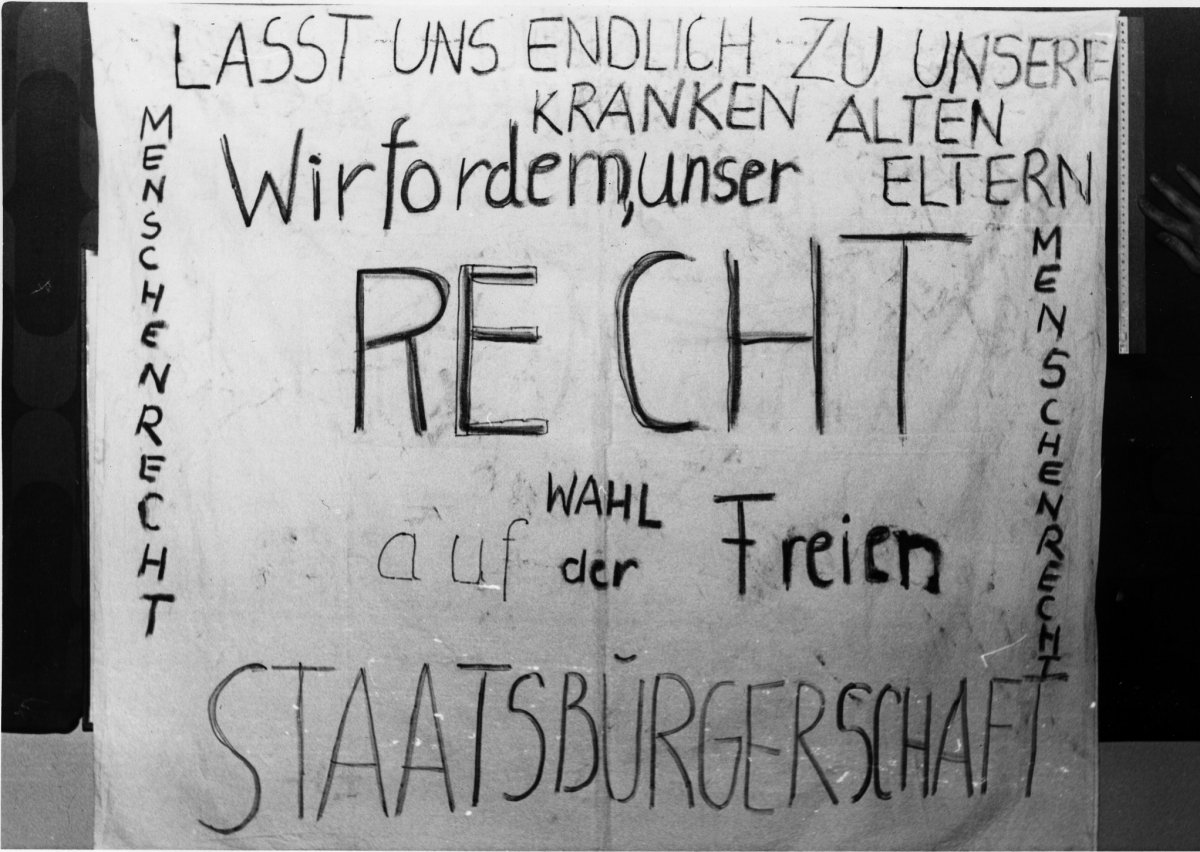 LASST UNS ENDLICH ZU UNSERE
KRANKEN ALTEN
ELTERN
Wir fordern, unser
RECHT
auf WAHL der Freien
STAATSBÜRGERSCHAFT
MENSCHENRECHT
MENSCHENRECHT